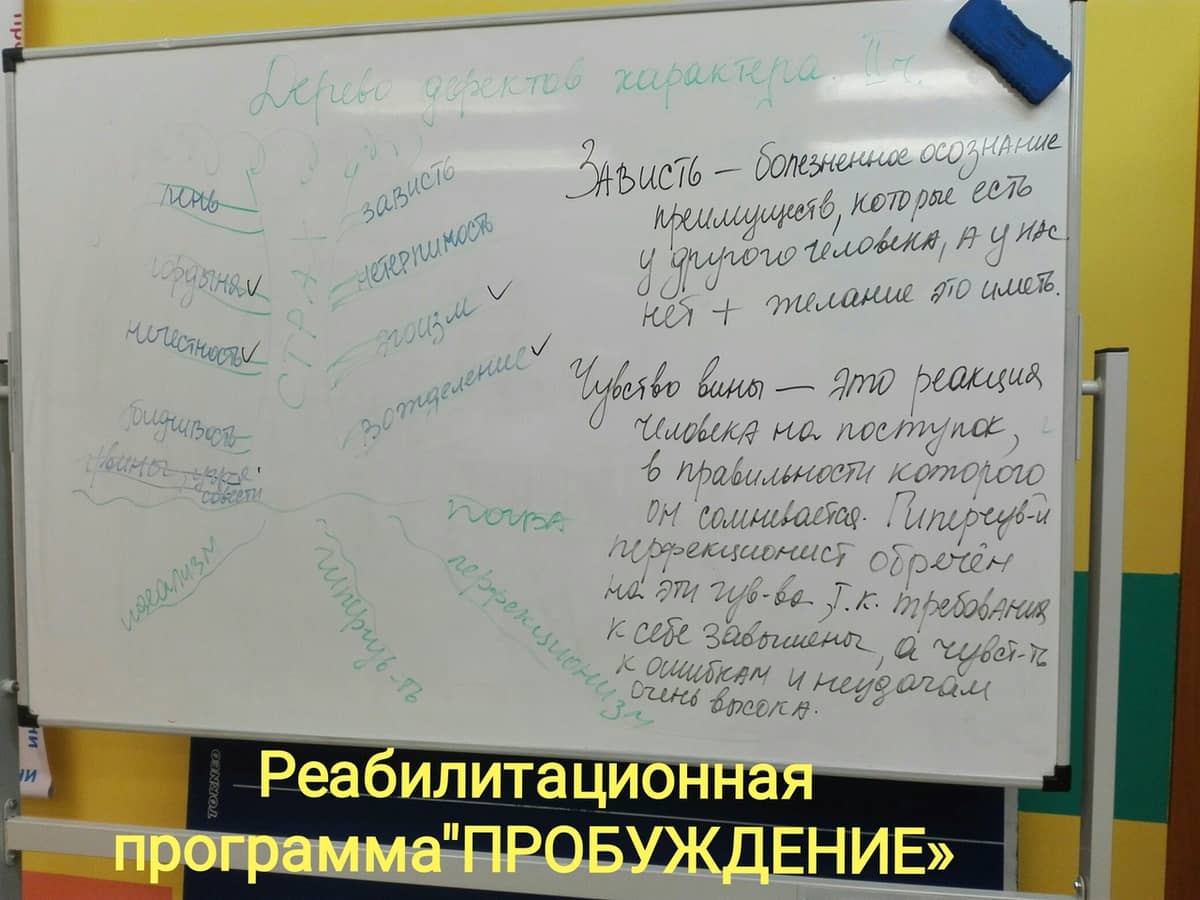 Дерево дефектов характера. II ч.
лень
гордыня ✓
нечестность ✓
обидчивость
совести
СТРАХ
зависть
нетерпимость
эгоизм ✓
вожделение ✓
почва
идеализм
гиперчув-ть
перфекционизм
ЗАВИСТЬ — болезненное осознание
преимуществ, которые есть
у другого человека, а у нас
нет + желание это иметь.
Чувство вины — это реакция
человека на поступок,
в правильности которого
он сомневается. Гиперчув-й
перфекционист обречён
на эти чув-ва, т.к. требования
к себе завышены, а чувст-ть
к ошибкам и неудачам
очень высока.
TORNEO
Реабилитационная
программа"ПРОБУЖДЕНИЕ»